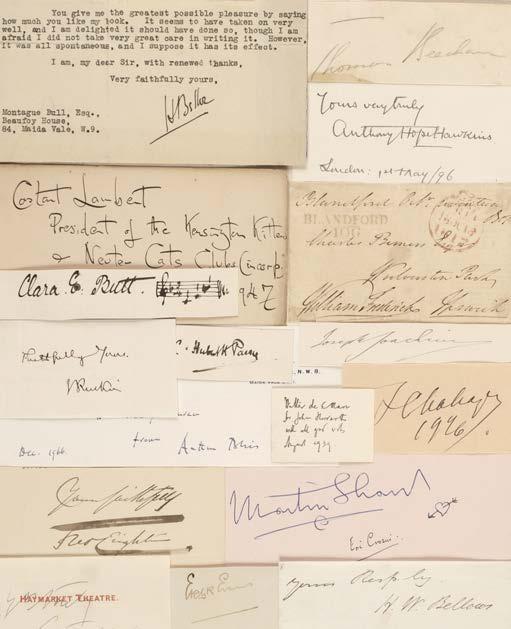 You give me the greatest possible pleasure by saying
how much you like my book. It seems to have taken on very
well, and I am delighted it should have done so, though I am
afraid I did not take very great care in writing it. However,
it was all spontaneous, and I suppose it has its effect.
I am, my dear Sir, with renewed thanks,
Very faithfully yours,
Montague Bull, Esq.,
Beaufoy House,
84, Maida Vale, W.9.
Thomas Beecham
Yours very truly
Anthony Hope Hawkins
London: 1st May/96
Costant Lambert
President of the Kensington Kitten
& Neuter Cats Club (incorp.
947
Blandford Oct.
BLANDFORD
Charles
Park
Ipswich
Clara E. Butt.
Joseph Joachim
Faithfully Yours.
C. Hubert H Parry
N.W.8.
Walter de la Mare
for John
and all good
August 1939
1926.
Dec. 1966.
from
Arthur Bliss
Yours faithfully
Martin Shaw
HAYMARKET THEATRE.
Yours Resply.
H. W. Bellows